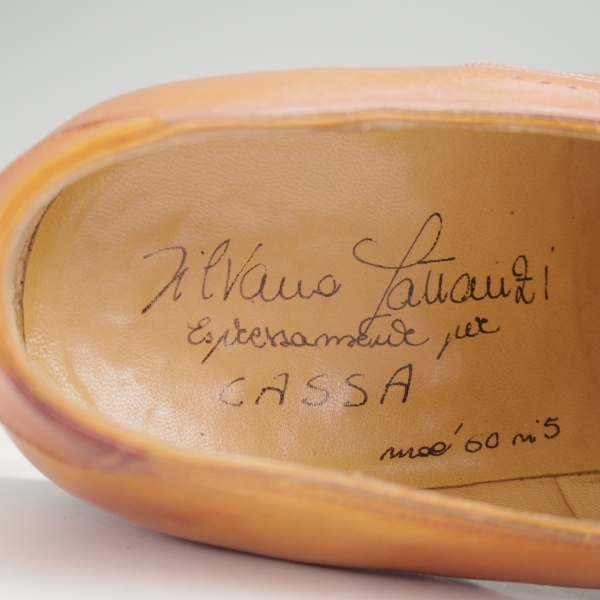 Silvano Lattanzi
Espressamente per
CASSA